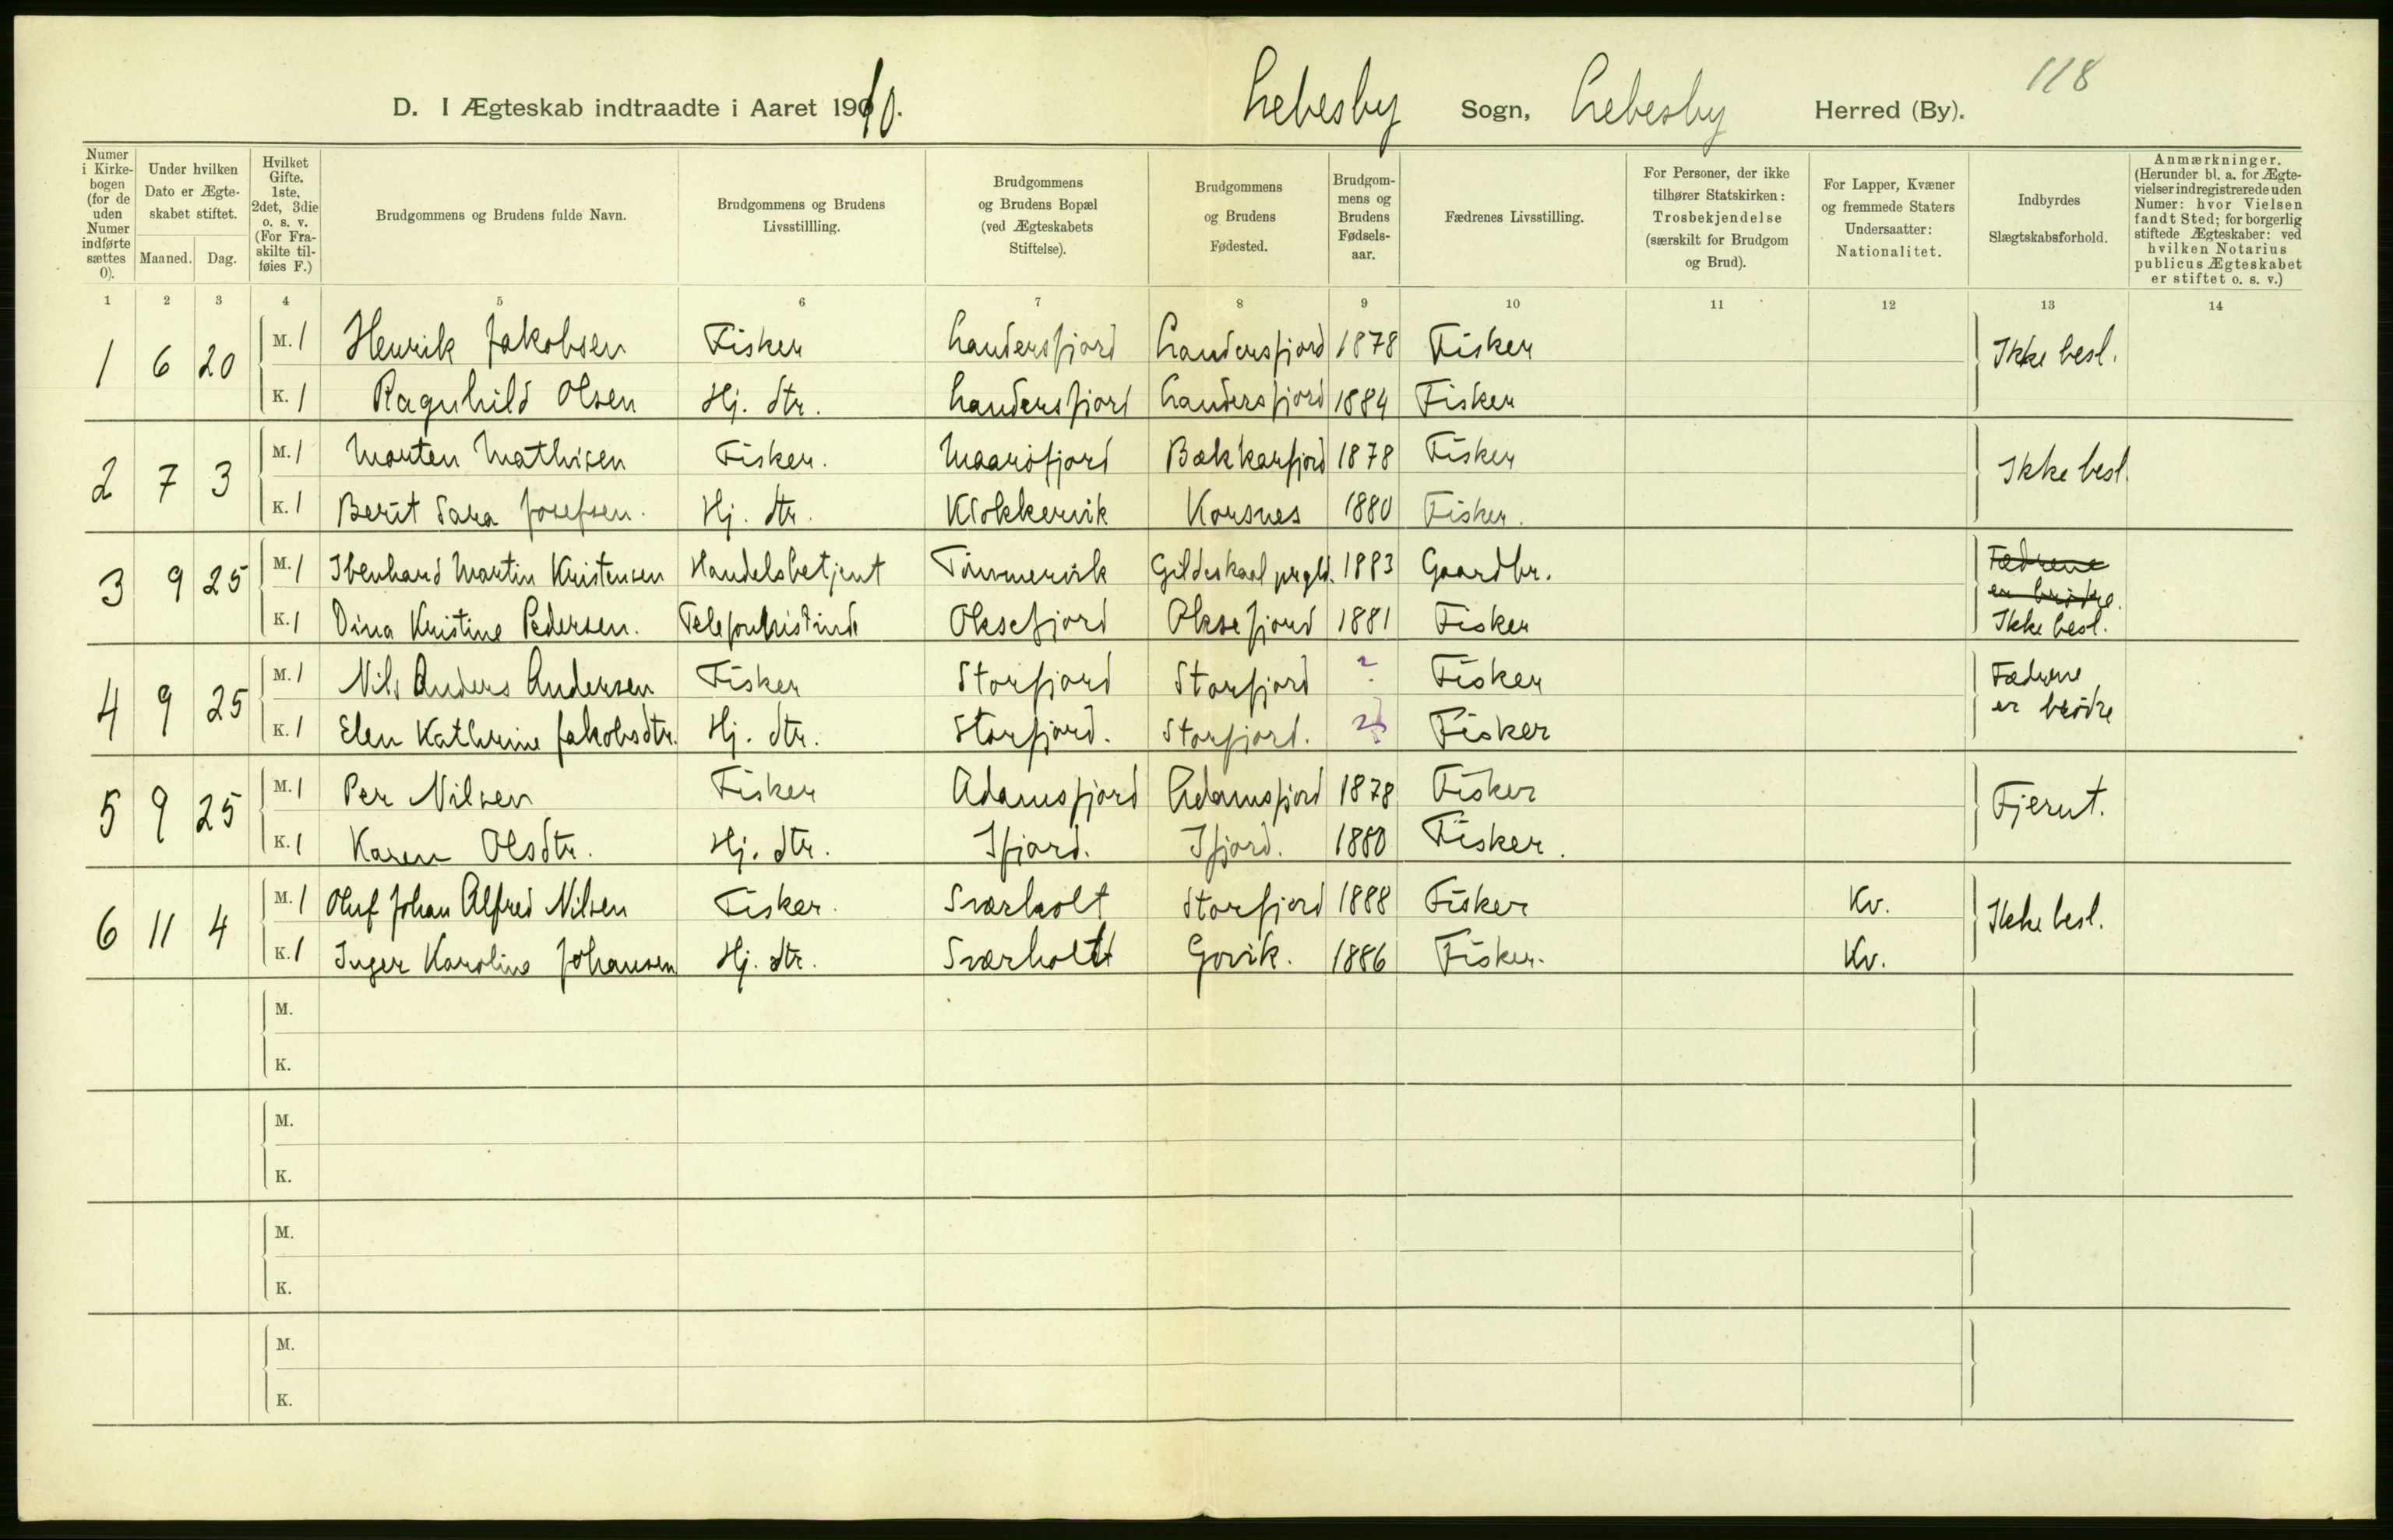 118
D. I Ægteskab indtraadte i Aaret 1910. Lebesby Sogn, Lebesby Herred (By).
Numer i Kirkebogen (for de uden Numer indførte sættes 0).
Under hvilken Dato er Ægteskabet stiftet. Maaned. Dag.
Hvilket Gifte. 1ste, 2det, 3die o. s. v. (For Fraskilte tilføies F.)
Brudgommens og Brudens fulde Navn.
Brudgommens og Brudens Livsstillling.
Brudgommens og Brudens Bopæl (ved Ægteskabets Stiftelse).
Brudgommens og Brudens Fødested.
Brudgommens og Brudens Fødselsaar.
Fædrenes Livsstilling.
For Personer, der ikke tilhører Statskirken: Trosbekjendelse (særskilt for Brudgom og Brud).
For Lapper, Kvæner og fremmede Staters Undersaatter: Nationalitet.
Indbyrdes Slægtskabsforhold.
Anmærkninger. (Herunder bl. a. for Ægtevielser indregistrerede uden Numer: hvor Vielsen fandt Sted; for borgerlig stiftede Ægteskaber: ved hvilken Notarius publicus Ægteskabet er stiftet o. s. v.)
1 2 3 4 5 6 7 8 9 10 11 12 13 14
1 6 20 M. 1 Henrik Jakobsen Fisker Landersfjord Landersfjord 1878 Fisker Ikke besl.
K. 1 Ragnhild Olsen Hj. dtr. Landersfjord Landersfjord 1884 Fisker
2 7 3 M. 1 Morten Mathisen Fisker. Maarøfjord Bekkarfjord 1878 Fisker Ikke besl.
K. 1 Berit Sara Josefsen. Hj. dtr. Klokkervik Korsnes 1880 Fisker.
3 9 25 M. 1 Ibenhard Martin Kristensen Handelsbetjent Tømmervik Gildeskaal prgld. 1883 Gaardbr. Fædrene er brødre. Ikke besl.
K. 1 Dina Kristine Pedersen. Telefonistinde Oksefjord Oksefjord 1881 Fisker
4 9 25 M. 1 Nils Anders Andersen Fisker Storfjord Storfjord ? Fisker Fædrene er brødre
K. 1 Elen Kathrine Jakobsdtr. Hj. dtr. Storfjord. Storfjord. Fisker
5 9 25 M. 1 Per Nilsen Fisker Adamsfjord Adamsfjord 1878 Fisker Fjernt.
K. 1 Karen Olsdtr. Hj. dtr. Ifjord. Ifjord. 1880 Fisker.
6 11 4 M. 1 Oluf Johan Alfred Nilsen Fisker. Sværholt Storfjord 1888 Fisker Kv. Ikke besl.
K. 1 Inger Karoline Johansen Hj. dtr. Sværholt Govik. 1886 Fisker. Kv.
M.
K.
M.
K.
M.
K.
M.
K.